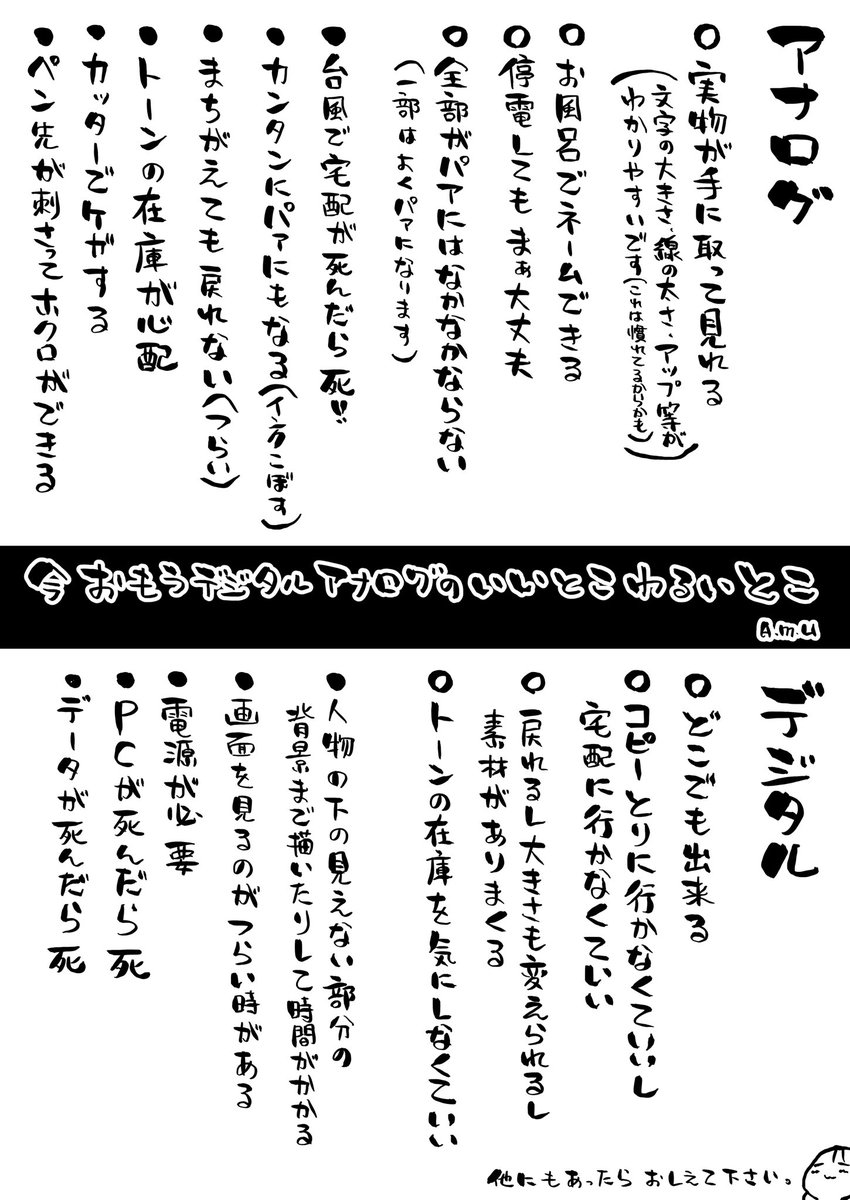 アナログ
○実物が手に取って見れる
(文字の大きさ、線の太さ、アップ等が
わかりやすいです(これは慣れてるからかも))
○お風呂でネームできる
○停電してもまぁ大丈夫
○全部がパアにはなかなかならない
(一部はよくパアになります)
●台風で宅配が死んだら死!!
●カンタンにパァにもなる(インクこぼす)
●まちがえても戻れない(つらい)
●トーンの在庫が心配
●カッターでケガする
●ペン先が刺さってホクロができる
今おもうデジタルアナログのいいとこわるいとこ
A.m.u
デジタル
○どこでも出来る
○コピーとりに行かなくていいし
宅配に行かなくていい
○戻れるし大きさも変えられるし
素材がありまくる
○トーンの在庫を気にしなくていい
●人物の下の見えない部分の
背景まで描いたりして時間がかかる
●画面を見るのがつらい時がある
●電源が必要
●PCが死んだら死
●データが死んだら死
他にもあったらおしえて下さい。